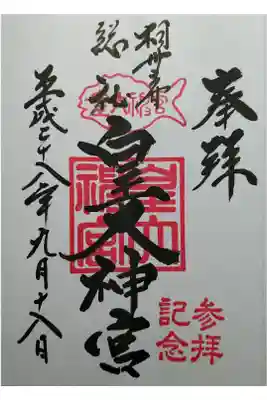 奉拝
総社
皇大神宮
皇大神宮
平成二十八年九月十八日
参拝
記念